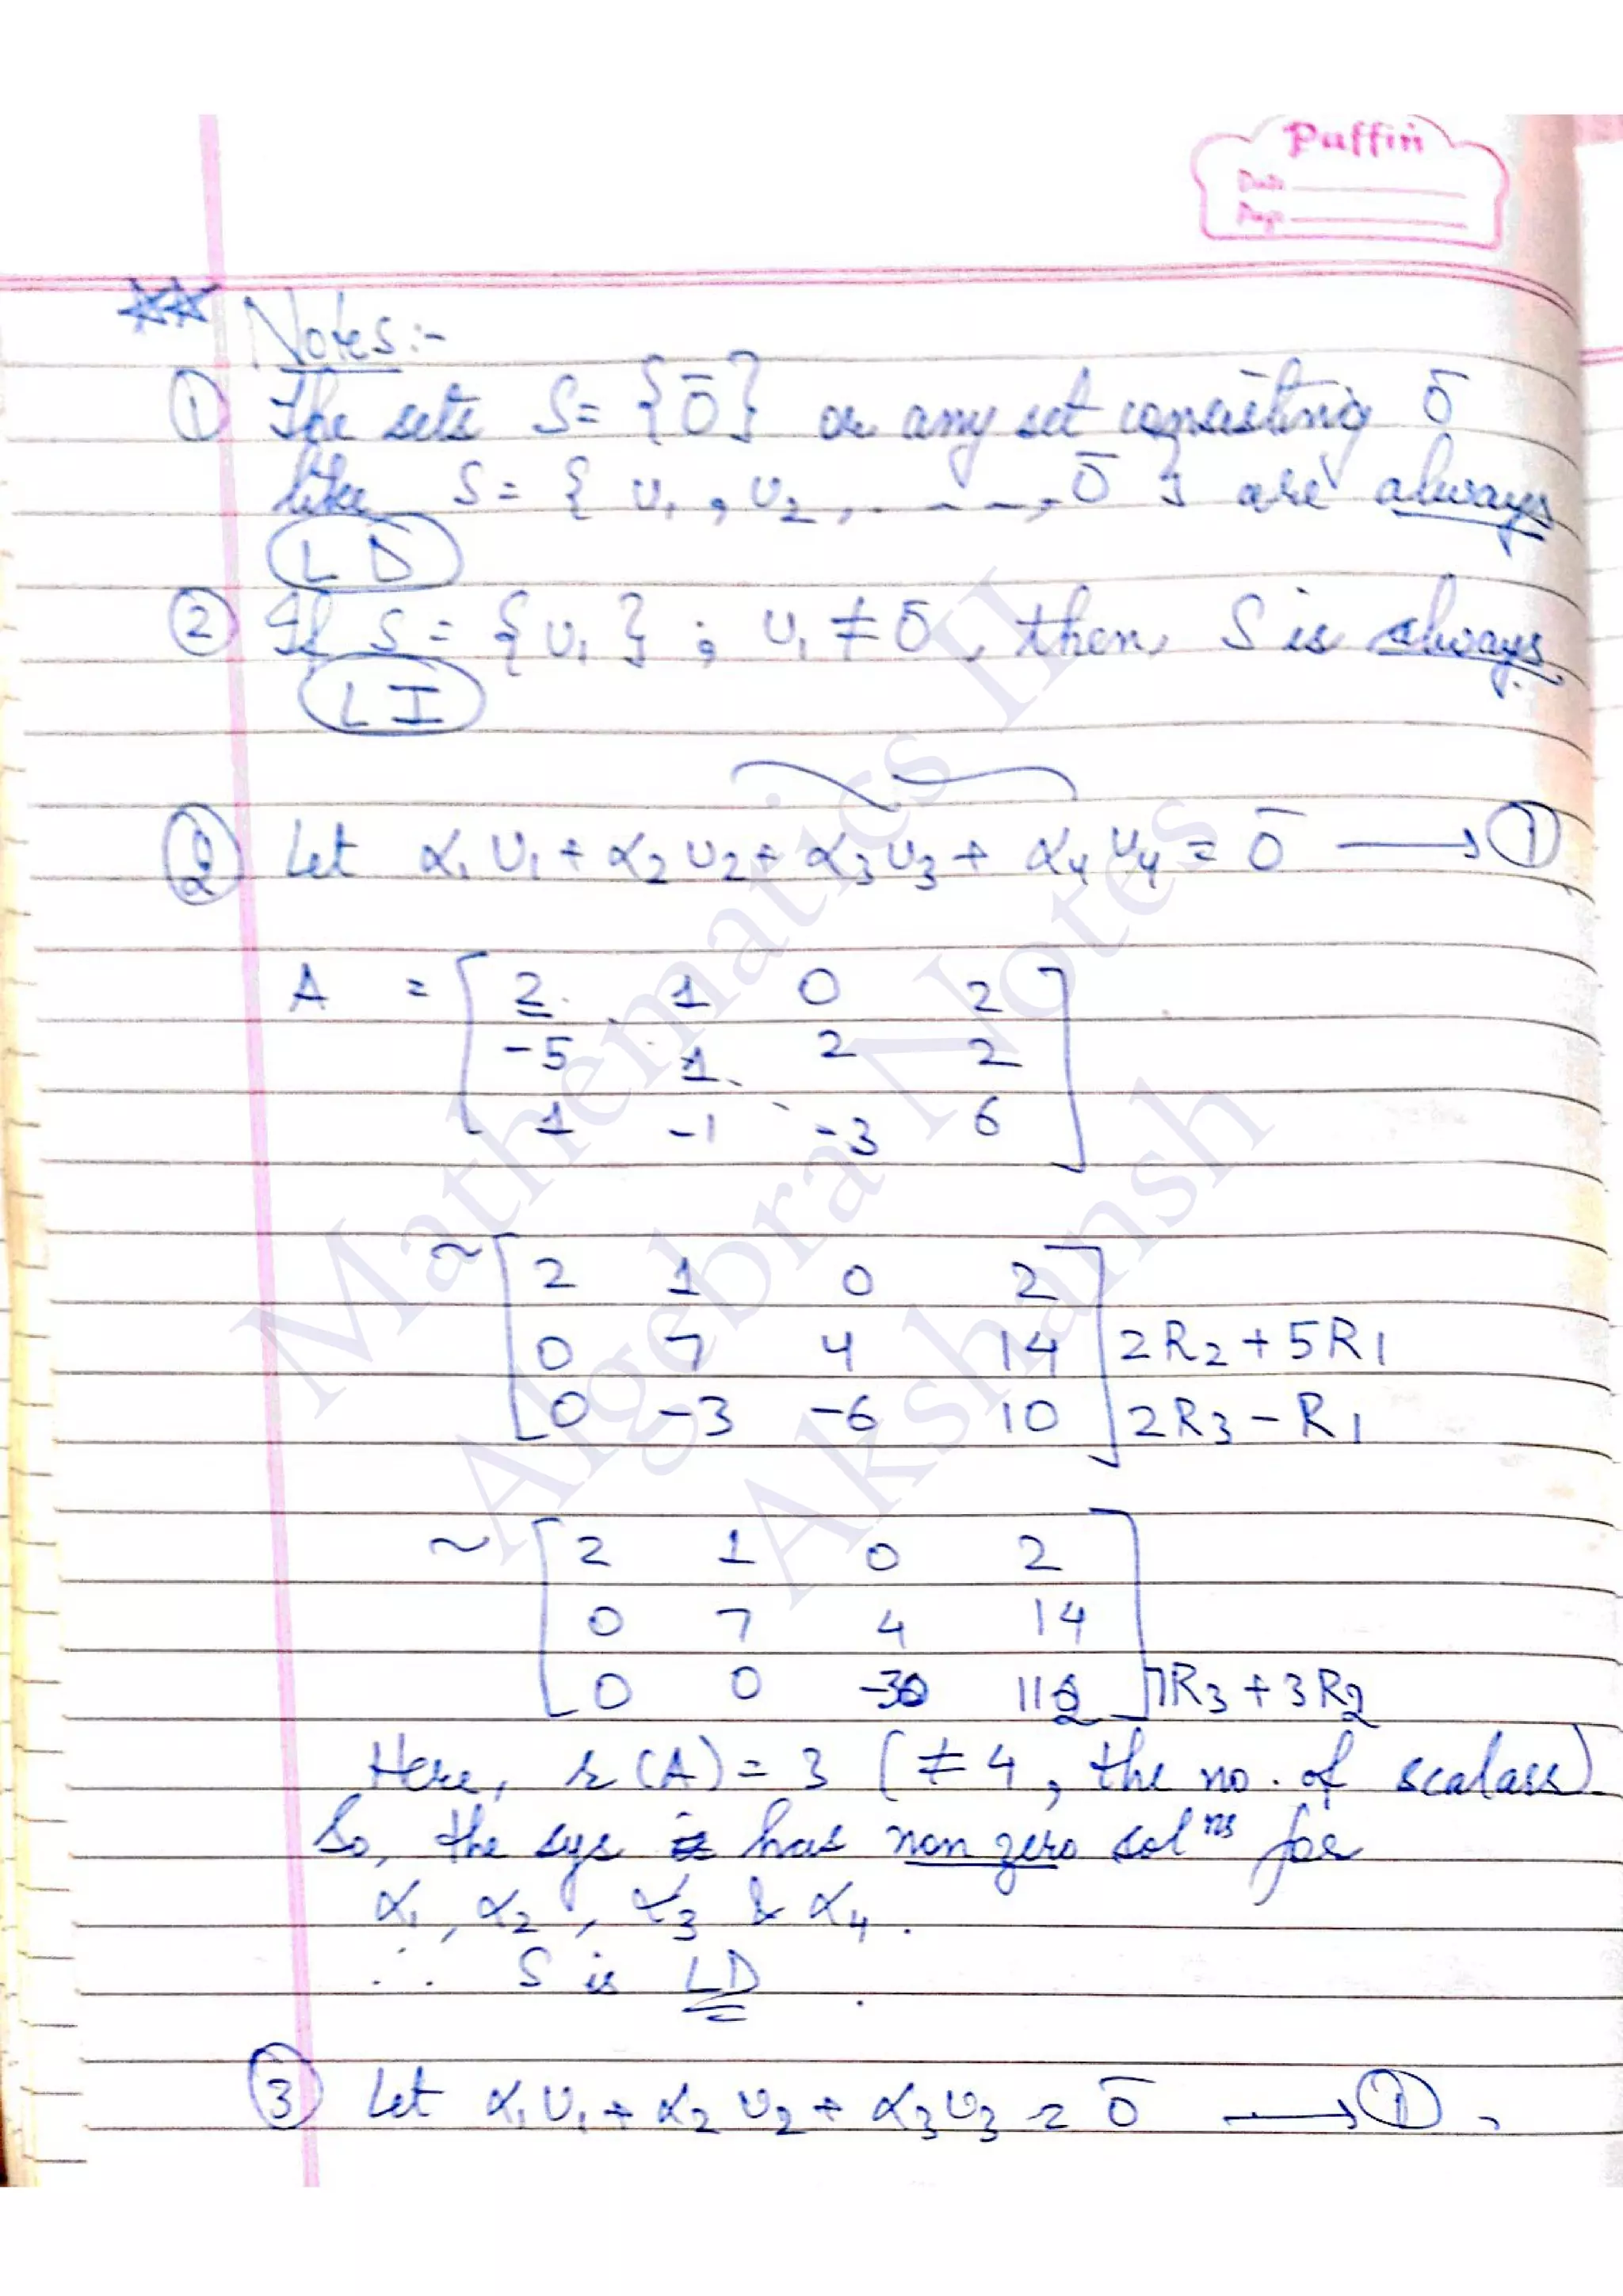 Puffin
Date
Page
** Notes:-
① The sets S = {0̄} or any set consisting 0̄
like S = { v₁, v₂, . - - -, 0̄ } are always
LD
② If S = {v₁} ; v₁ ≠ 0̄, then, S is always
LI
② Let α₁v₁ + α₂v₂ + α₃v₃ + α₄v₄ = 0̄ → ①
A = [ 2 1 0 2
-5 1 2 2
1 -1 -3 6 ]
~ [ 2 1 0 2
0 7 4 14 2R₂ + 5R₁
0 -3 -6 10 ] 2R₃ - R₁
~ [ 2 1 0 2
0 7 4 14
0 0 -30 112 ] 7R₃ + 3R₂
Here, r(A) = 3 ( ≠ 4, the no. of scalars)
So, the sys has non zero solⁿˢ for
α₁, α₂, α₃ & α₄.
∴ S is LD.
③ Let α₁v₁ + α₂v₂ + α₃v₃ = 0̄ → ①,
Mathematics II
Algebra Notes
Akshansh